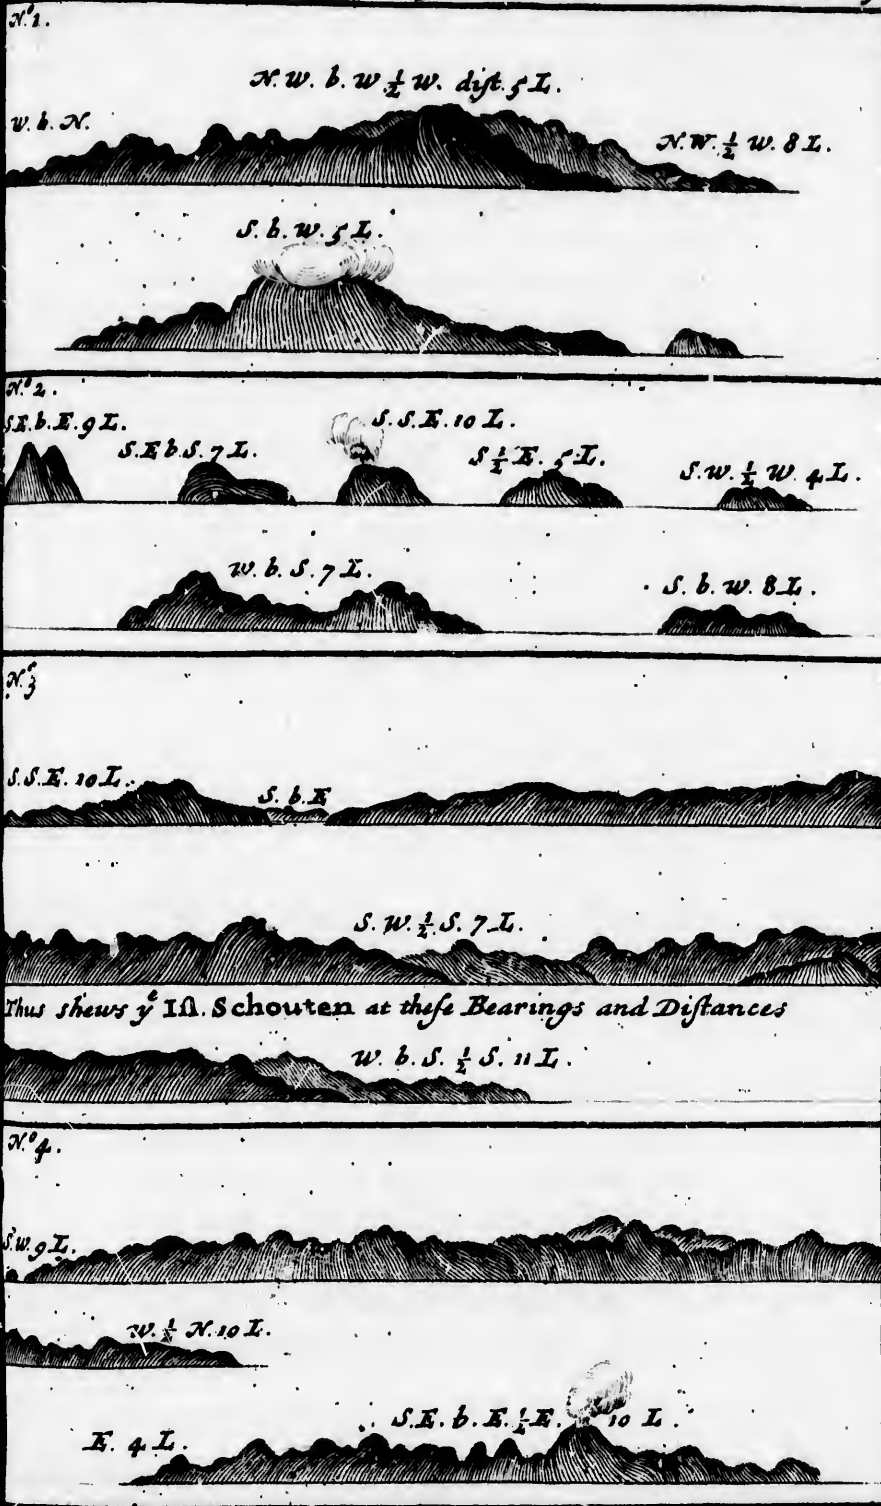 N.º 1.
N. W. b. W ½ W. dist. 5 L.
W. b. N.
N. W. ½ W. 8 L.
S. b. W. 5 L.
N.º 2.
S E. b. E. 9 L.
S. E b. S. 7 L.
S. S. E. 10 L.
S ½ E. 5 L.
S. W. ½ W. 4 L.
W. b. S. 7 L.
S. b. W. 8 L.
N.º 3
S. S. E. 10 L.
S. b. E
S. W. ½ S. 7 L.
Thus shews yᵉ Iſl. Schouten at theſe Bearings and Diſtances
W. b. S. ½ S. 11 L.
N.º 4.
S. W. 9 L.
W. ½ N. 10 L.
S. E. b. E. ½ E. 10 L.
E. 4 L.